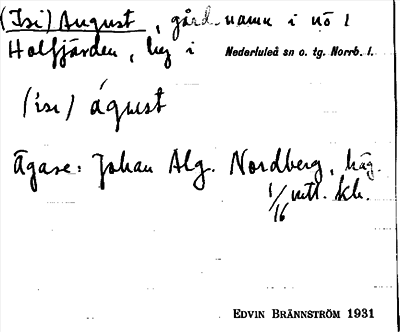 (Isi) August, gård-namn i nö 1
Holfjärden, by i Nederluleå sn o. tg. Norrb. l.
(ísı) águst
Ägare: Johan Alg. Nordberg, häg.
1/16 mtl. kh.
EDVIN BRÄNNSTRÖM 1931